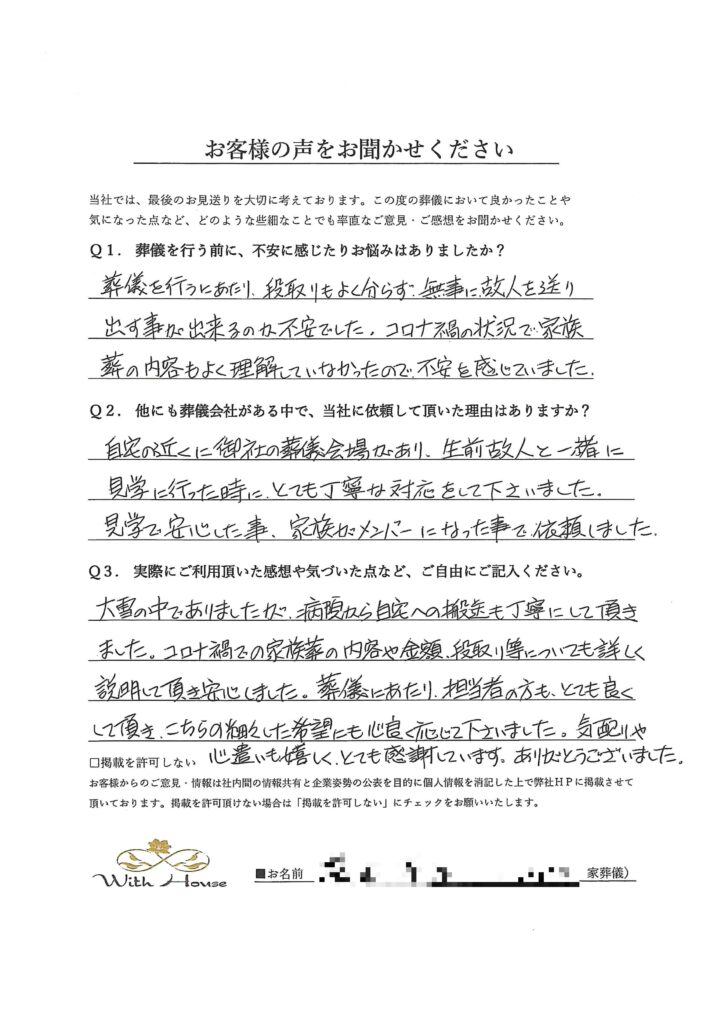 お客様の声をお聞かせください
当社では、最後のお見送りを大切に考えております。この度の葬儀において良かったことや
気になった点など、どのような些細なことでも率直なご意見・ご感想をお聞かせください。
Q1. 葬儀を行う前に、不安に感じたりお悩みはありましたか？
葬儀を行うにあたり、段取りもよく分らず、無事に故人を送り
出す事が出来るのか不安でした。コロナ禍の状況で家族
葬の内容もよく理解していなかったので、不安を感じていました。
Q2. 他にも葬儀会社がある中で、当社に依頼して頂いた理由はありますか？
自宅の近くに御社の葬儀会場があり、生前故人と一緒に
見学に行った時に、とても丁寧な対応をして下さいました。
見学で安心した事、家族がメンバーになった事で依頼しました。
Q3. 実際にご利用頂いた感想や気づいた点など、ご自由にご記入ください。
大雪の中でありましたが、病院から自宅への搬送も丁寧にして頂き
ました。コロナ禍での家族葬の内容や金額、段取り等についても詳しく
説明して頂き安心しました。葬儀にあたり、担当者の方も、とても良く
して頂き、こちらの細々した希望にも心良く応じて下さいました。気配りや
心遣いも嬉しく、とても感謝しています。ありがとうございました。
□掲載を許可しない
お客様からのご意見・情報は社内間の情報共有と企業姿勢の公表を目的に個人情報を消記した上で弊社HPに掲載させて
頂いております。掲載を許可頂けない場合は「掲載を許可しない」にチェックをお願いいたします。
With House
■お名前 家葬儀）